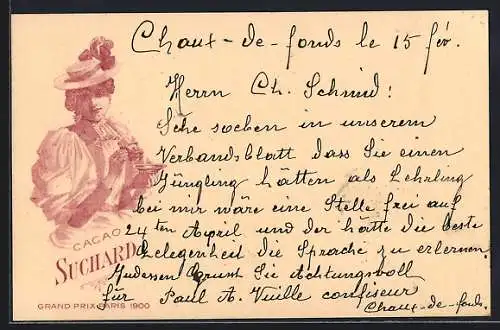 Chaux-de-fonds le 15 fév.
Herrn Ch. Schmid!
Sehe soeben in unserem
Verbandsblatt dass Sie einen
Jüngling hätten als Lehrling
bei mir wäre eine Stelle frei auf
24ten April und der hätte die beste
Gelegenheit die Sprache zu erlernen.
Indessen Grüsst Sie Achtungsvoll
für Paul A. Vuille confiseur
Chaux-de-fonds.
CACAO
SUCHARD
GRAND PRIX PARIS 1900